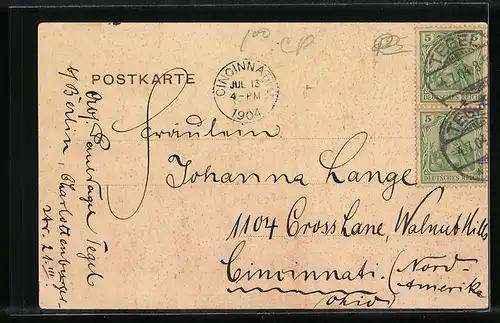 100
CP
5
5
TEGEL
7.04
DEUTSCHES REICH
5
5
TEGEL
7.04
DEUTSCHES REICH
POSTKARTE
CINCINNATI, O.
JUL 13
4-PM
1904
Fräulein
Johanna Lange
1104 Cross Lane, Walnut Hills
Cincinnati. (Nord-
Amerika
(Ohio)
Tegel
b/ Berlin, Charlottenburger-
str. 21. III